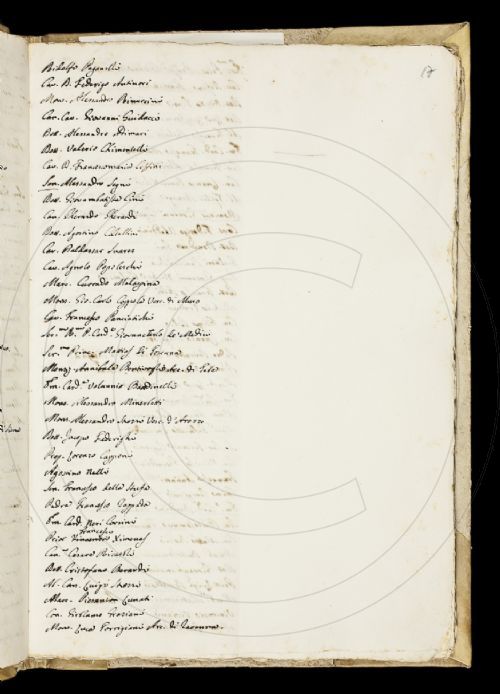 17
Ridolfo Paganelli
Cav. B. Federigo Antinori
Mons. Alessandro Rinuccini
Cav. Cav. Giovanni Guidacci
Bott. Alessandro Adimari
Bott. Valerio Chimentelli
Cav. B. Francesco Maria
Sen. Alessandro Segni
Bott. Giovambatista
Cav. Gherardo Gherardi
Bott. Agostino Coltellini
Cav. Baldassar Suarez
Cav. Agnolo Popoleschi
Marc. Currado Malaspina
Mons. Gio. Carlo Coppola Vesc. di Muro
Cav. Francesco Panciatichi
Ser.mo P. Card. Giovan Carlo de Medici
Ser.mo Princ. Mattias di Toscana
Monsig. Annibale Bentivogli di Tebe
Em. Card. Volunnio Bandinelli
Mons. Alessandro Minerbetti
Mons. Alessandro Strozzi Vesc. d'Arezzo
Bott. Jacopo Federighi
Prop. Lorenzo Capponi
Agostino Nelli
Sen. Francesco della Stufa
Padre Francesco
Em. Card. Neri Corsini
Francesco
Prior Ximenes
Can. Cesare Ricasoli
Bott. Cristofano Berardi
Al. Can. Luigi Strozzi
Marc. Lunati
Con. Girolamo Graziani
Mons. Luca Torrigiani Arc. di Ravenna